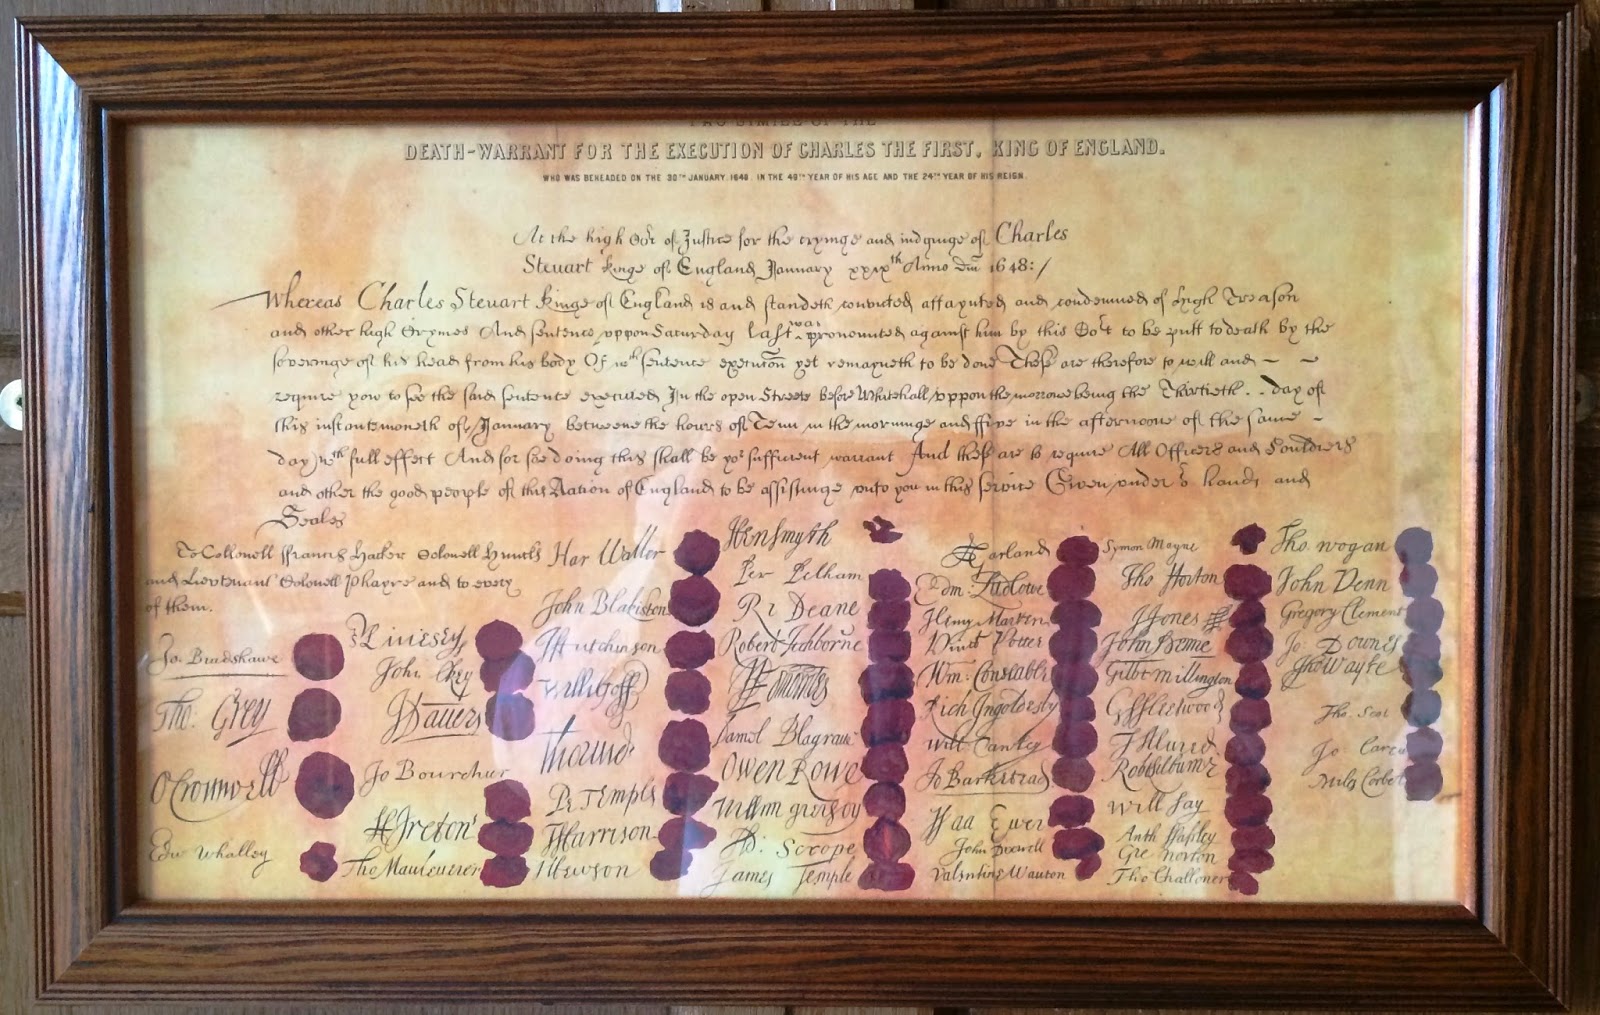 FAC SIMILE OF THE
DEATH-WARRANT FOR THE EXECUTION OF CHARLES THE FIRST, KING OF ENGLAND.
WHO WAS BEHEADED ON THE 30TH JANUARY 1648. IN THE 49TH YEAR OF HIS AGE AND THE 24TH YEAR OF HIS REIGN.
At the high Cort of Justice for the tryinge and iudginge of Charles
Steuart kinge of England January xxixth Anno Dm 1648:/
Whereas Charles Steuart kinge of England is and standeth convicted attaynted and condemned of high Treason
and other high Crymes And sentence uppon Saturday last was pronounced against him by this Cort to be putt to death by the
severinge of his head from his body Of wch sentence execucon yet remayneth to be done These are therefore to will and
require you to see the said sentence executed In the open Streete before Whitehall uppon the morrowe being the Thirtieth day of
this instante moneth of January betweene the hours of Tenn in the morninge and ffive in the afternoone of the same
day wth full effect And for soe doing this shall be yor sufficient warrant And these are to require All Officers and Souldiers
and other the good people of this Nation of England to be assistinge unto you in this service Given under or hands and
Seales
To Collonell ffrancis Hacker Colonell Huncks
and Lieutenant Colonell Phayre and to every
of them.
Jo. Bradshawe
Tho: Grey
O Cromwell
Edw Whalley
M Livesey
John Okey
J Dauers
Jo Bourchier
H Ireton
Tho Mauleverer
Har Waller
John Blakiston
J Hutchinson
Willi Goff
Tho Pride
Pe Temple
T Harrison
J Hewson
Hen Smyth
Per Pelham
Ri Deane
Robert Tichborne
H Edwardes
Daniel Blagrave
Owen Rowe
William Purefoy
Ad: Scrope
James Temple
A Garland
Edm: Ludlowe
Henry Marten
Vinct Potter
Wm: Constable
Rich Ingoldesby
Will Cawley
Jo Barkstead
Isaa Ewer
John Dixwell
Valentine Wauton
Symon Mayne
Tho Horton
J Jones
John Penne
Gilbt Millington
G ffleetwood
J Alured
Robt Lilburne
Will Say
Anth Stapley
Gre Norton
Tho Challoner
Tho Wogan
John Venn
Gregory Clement
Jo Downes
Tho Wayte
Tho Scot
Jo Carew
Miles Corbet